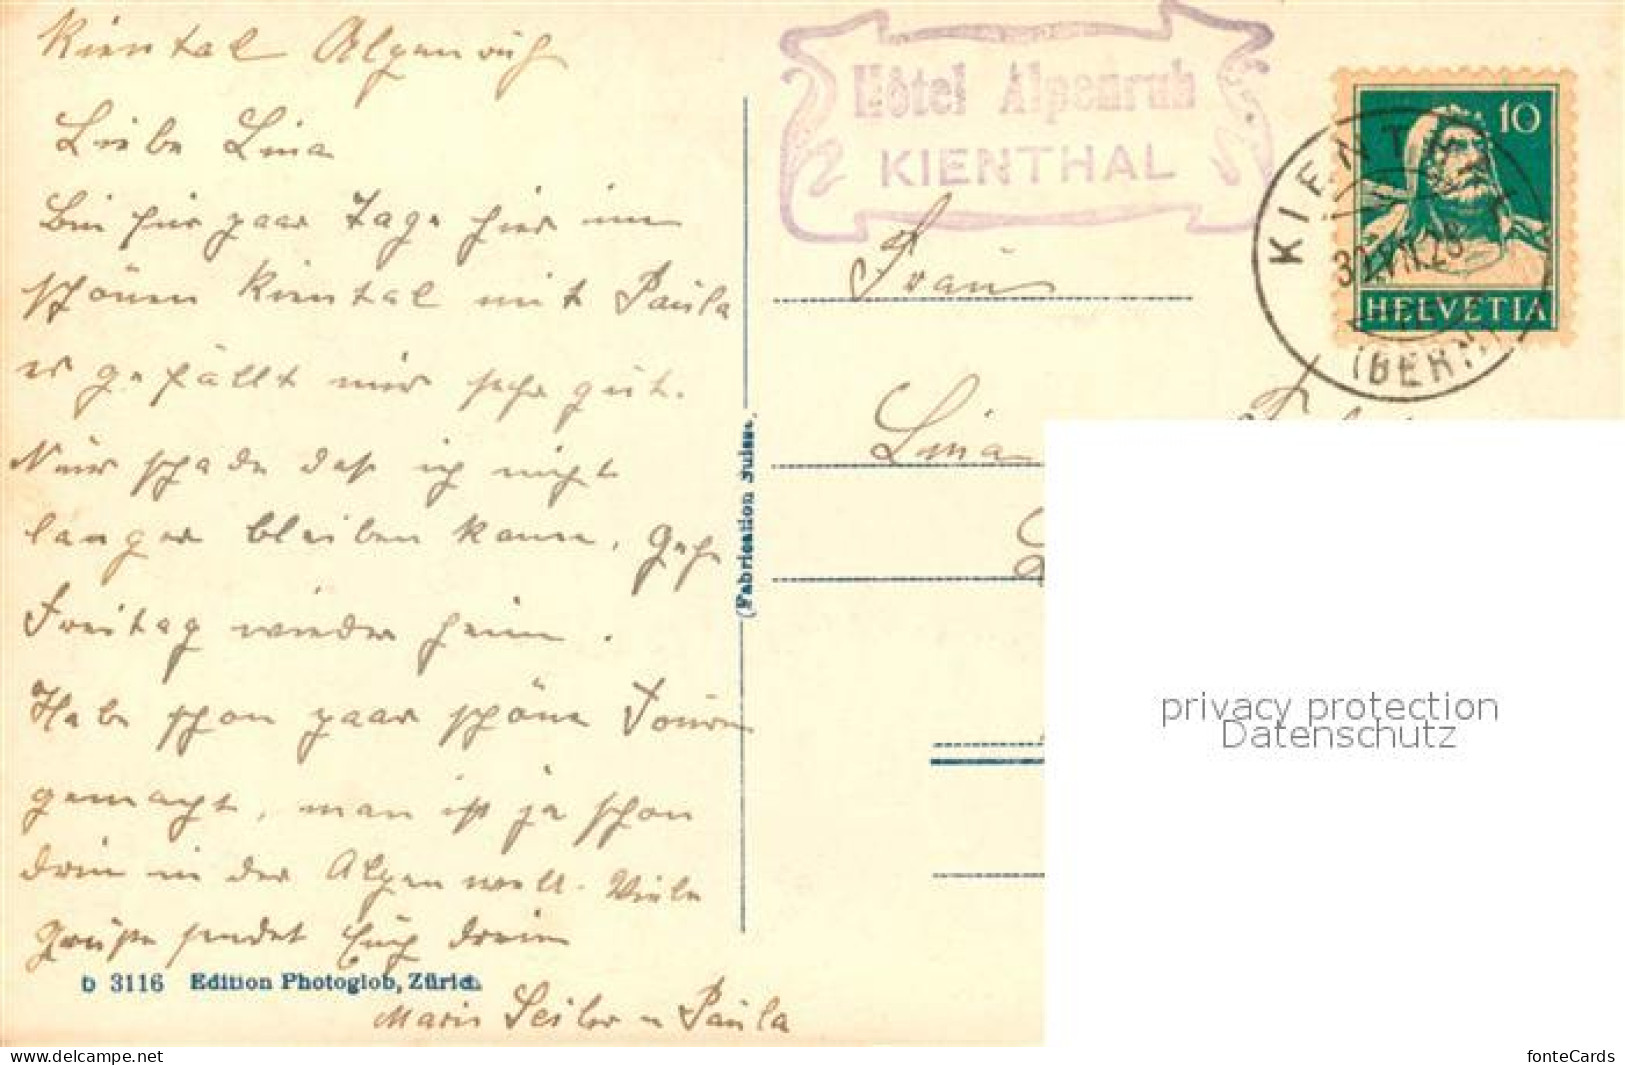 Kiental Alpenruh
Liebe Lina
Bin für paar Tage hier im
schönen Kiental mit Paula
es gefällt mir sehr gut.
Nur schade daß ich nicht
langer bleiben kann, Gehe
Freitag wieder heim.
Habe schon paar schöne Touren
gemacht, man ist ja schon
drin in der Alpenwelt. Viele
Grüße sendet Euch
D 3116 Edition Photoglob, Zürich.
Marie Seiler u Paula
(Fabrication Suisse.
Hôtel Alpenruh
KIENTHAL
10
HELVETIA
KIENTHAL
30.VII.28
(BERN)
Frau
Lina
privacy protection
Datenschutz
www.delcampe.net
fonteCards